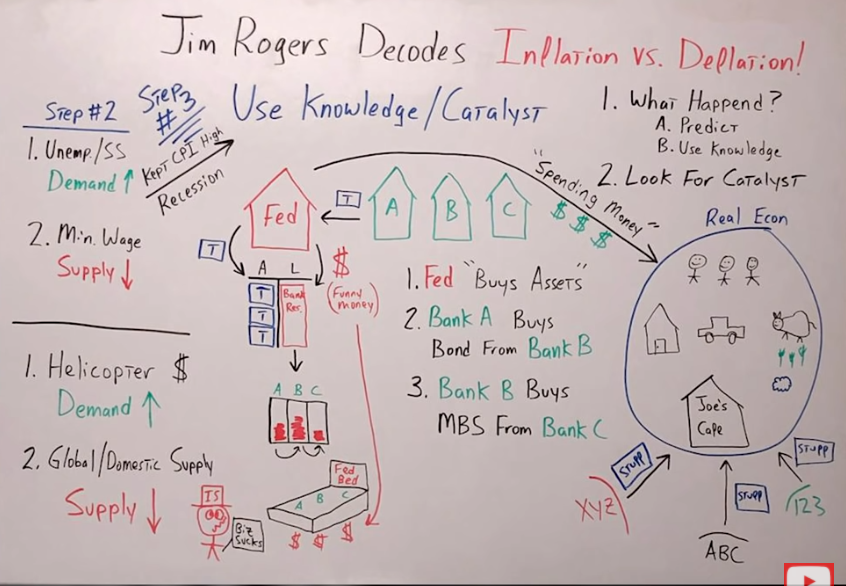 Jim Rogers Decodes Inflation vs. Deflation!
Step #2
Step
#3
Use Knowledge/Catalyst
1. Unemp./SS
Demand ↑
Kept CPI High
Recession
2. Min. Wage
Supply ↓
1. Helicopter $
Demand ↑
2. Global/Domestic Supply
Supply ↓
1. What Happend?
A. Predict
B. Use Knowledge
2. Look For Catalyst
"Spending Money"
$ $ $
Real Econ
Fed
T
A
B
C
T
A L
T
T
T
Bank
Res.
$
(Funny
Money)
A B C
Fed
Bed
A B C
$ $ $
IS
Biz
Sucks
1. Fed "Buys Assets"
2. Bank A Buys
Bond From Bank B
3. Bank B Buys
MBS From Bank C
Joe's
Cafe
Stuff
XYZ
Stuff
ABC
Stuff
123